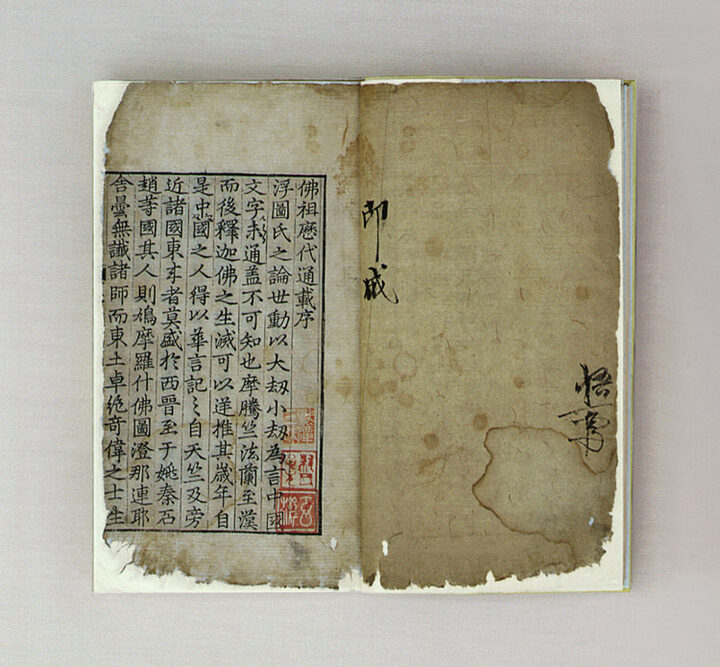 即成
佛祖歷代通載序
浮圖氏之論世動以大刼小刼為言中國
文字未通盖不可知也摩騰竺法蘭至漢
而後釋迦佛之生滅可以逆推其歲年自
是中國之人得以華言記〻自天竺及旁
近諸國東来者莫盛扵西晉至于姚秦石
趙等國其人則鳩摩羅什佛圖澄那連耶
舎曇無讖諸師而東土卓絶奇偉之士生